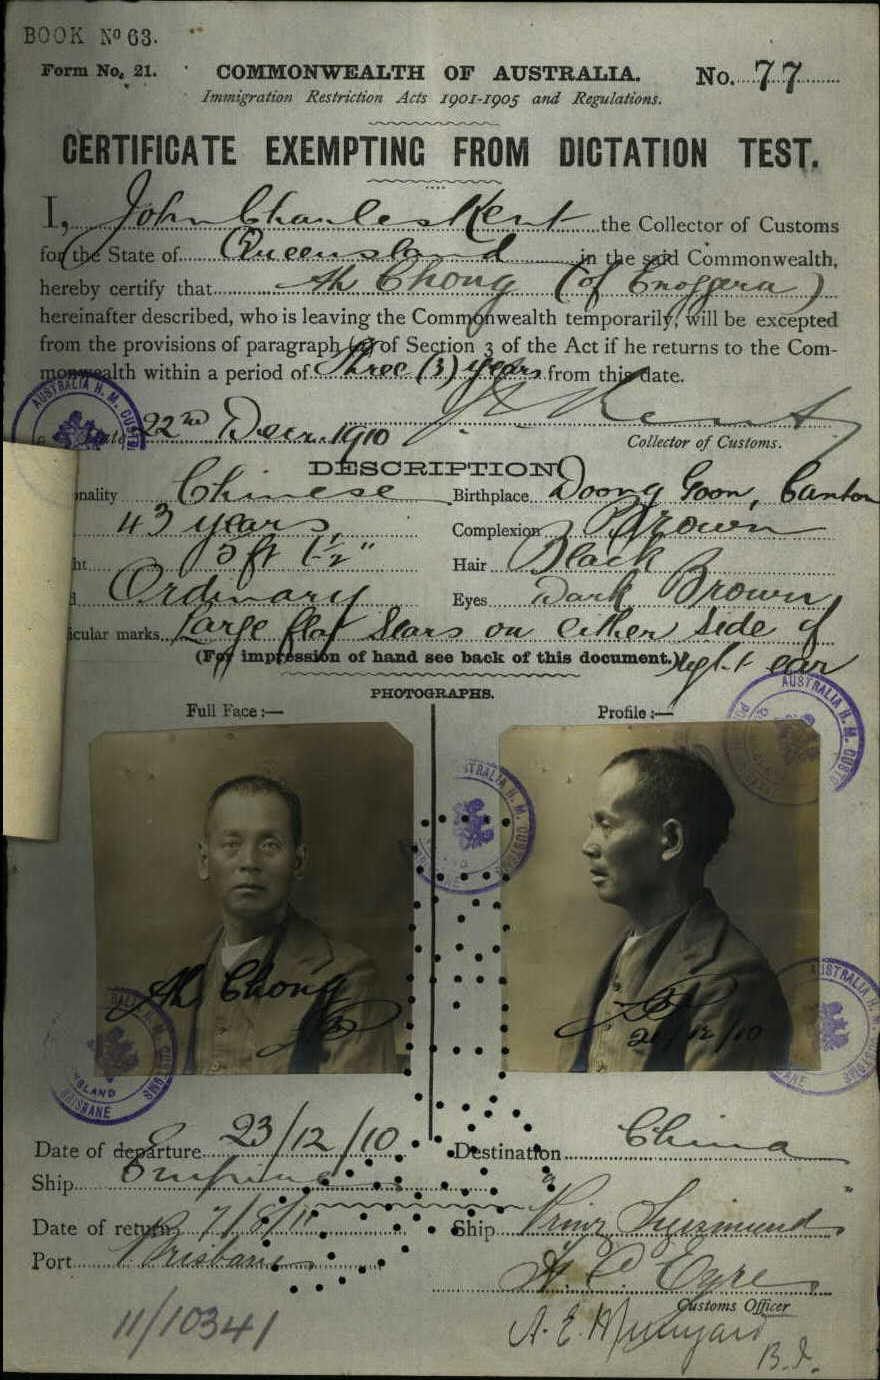 BOOK No 63.
Form No. 21. COMMONWEALTH OF AUSTRALIA. No. 77
Immigration Restriction Acts 1901-1905 and Regulations.
CERTIFICATE EXEMPTING FROM DICTATION TEST.
I, John Charles Kent the Collector of Customs
for the State of Queensland in the said Commonwealth,
hereby certify that Ah Chong (of Enoggera)
hereinafter described, who is leaving the Commonwealth temporarily, will be excepted
from the provisions of paragraph of Section 3 of the Act if he returns to the Com-
monwealth within a period of Three (3) years from this date.
AUSTRALIA H. M. CUSTOMS
Date 22nd Decr. 1910
Collector of Customs.
DESCRIPTION
nality Chinese Birthplace Doong Goon, Canton
43 years Complexion Brown
ht 5 ft 1½" Hair Black
d Ordinary Eyes Dark Brown
icular marks Large flat Scars on either side of
(For impression of hand see back of this document.) right ear
PHOTOGRAPHS.
Full Face :— Profile :—
AUSTRALIA H. M. CUSTOMS
Ah Chong
BRISBANE
Date of departure 23/12/10 Destination China
Ship Empire
Date of return 7/8/11 Ship Prinz Sigismund
Port Brisbane
Customs Officer
11/10341
B.I.